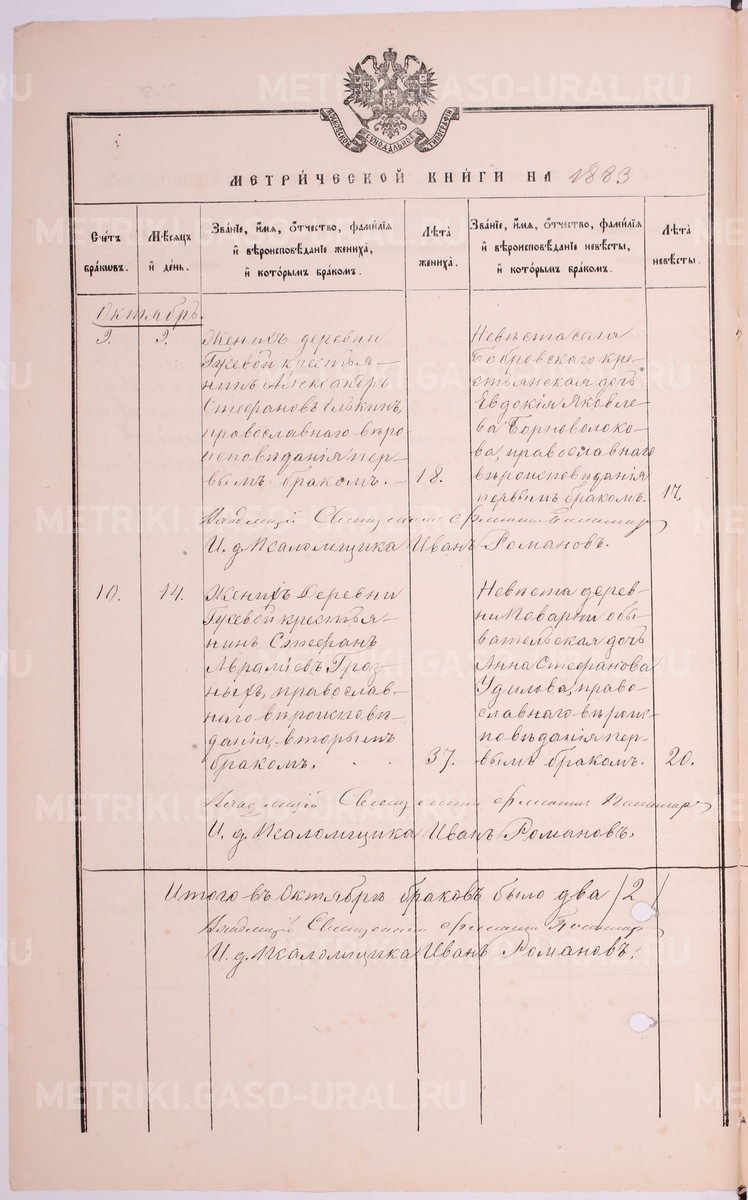 МОСКОВСКОЙ СУНОДАЛЬНОЙ ТИПОГРАФІИ
МЕТРИ́ЧЕСКОЙ КНИ́ГИ НА 1883
Сче́тъ бра́кѡвъ.
Мѣ́сѧцъ и҆ де́нь.
Зва́нїе, и҆́мѧ, ѻ҆́тчество, фами́лїѧ
и҆ вѣроисповѣ́данїе жениха̀,
и҆ кото́рымъ бра́комъ.
Лѣ́та жениха̀.
Зва́нїе, и҆́мѧ, ѻ҆́тчество, фами́лїѧ
и҆ вѣроисповѣ́данїе невѣ́сты,
и҆ кото́рымъ бра́комъ.
Лѣ́та невѣ́сты.
Октябрь.
9.
9.
Женихъ деревни
Гусевой крестья-
нинъ Александръ
Стефановъ Елькинъ,
православнаго вѣро
исповѣданія пер-
вымъ бракомъ.
18.
Невѣста села
Бобровского кре-
стьянская дочь
Евдокія Яковле-
ва Борноволоко-
ва, православнаго
вѣроисповѣданія
первымъ бракомъ.
17.
Священникъ
И. д. Псаломщика Иванъ Романовъ.
10.
14.
Женихъ Деревни
Гусевой крестья-
нинъ Стефанъ
Авраміевъ Гроз-
ныхъ, православ-
наго вѣроисповѣ-
данія, вторымъ
бракомъ.
37.
Невѣста дерев-
ни Поварни обы-
вательская дочь
Анна Стефанова
Удилова, право-
славнаго вѣроис-
повѣданія пер-
вымъ бракомъ.
20.
Священникъ
И. д. Псаломщика Иванъ Романовъ.
Итого въ Октябрѣ браковъ было два /2/
Священникъ
И. д. Псаломщика Иванъ Романовъ.
METRIKI.GASO-URAL.RU